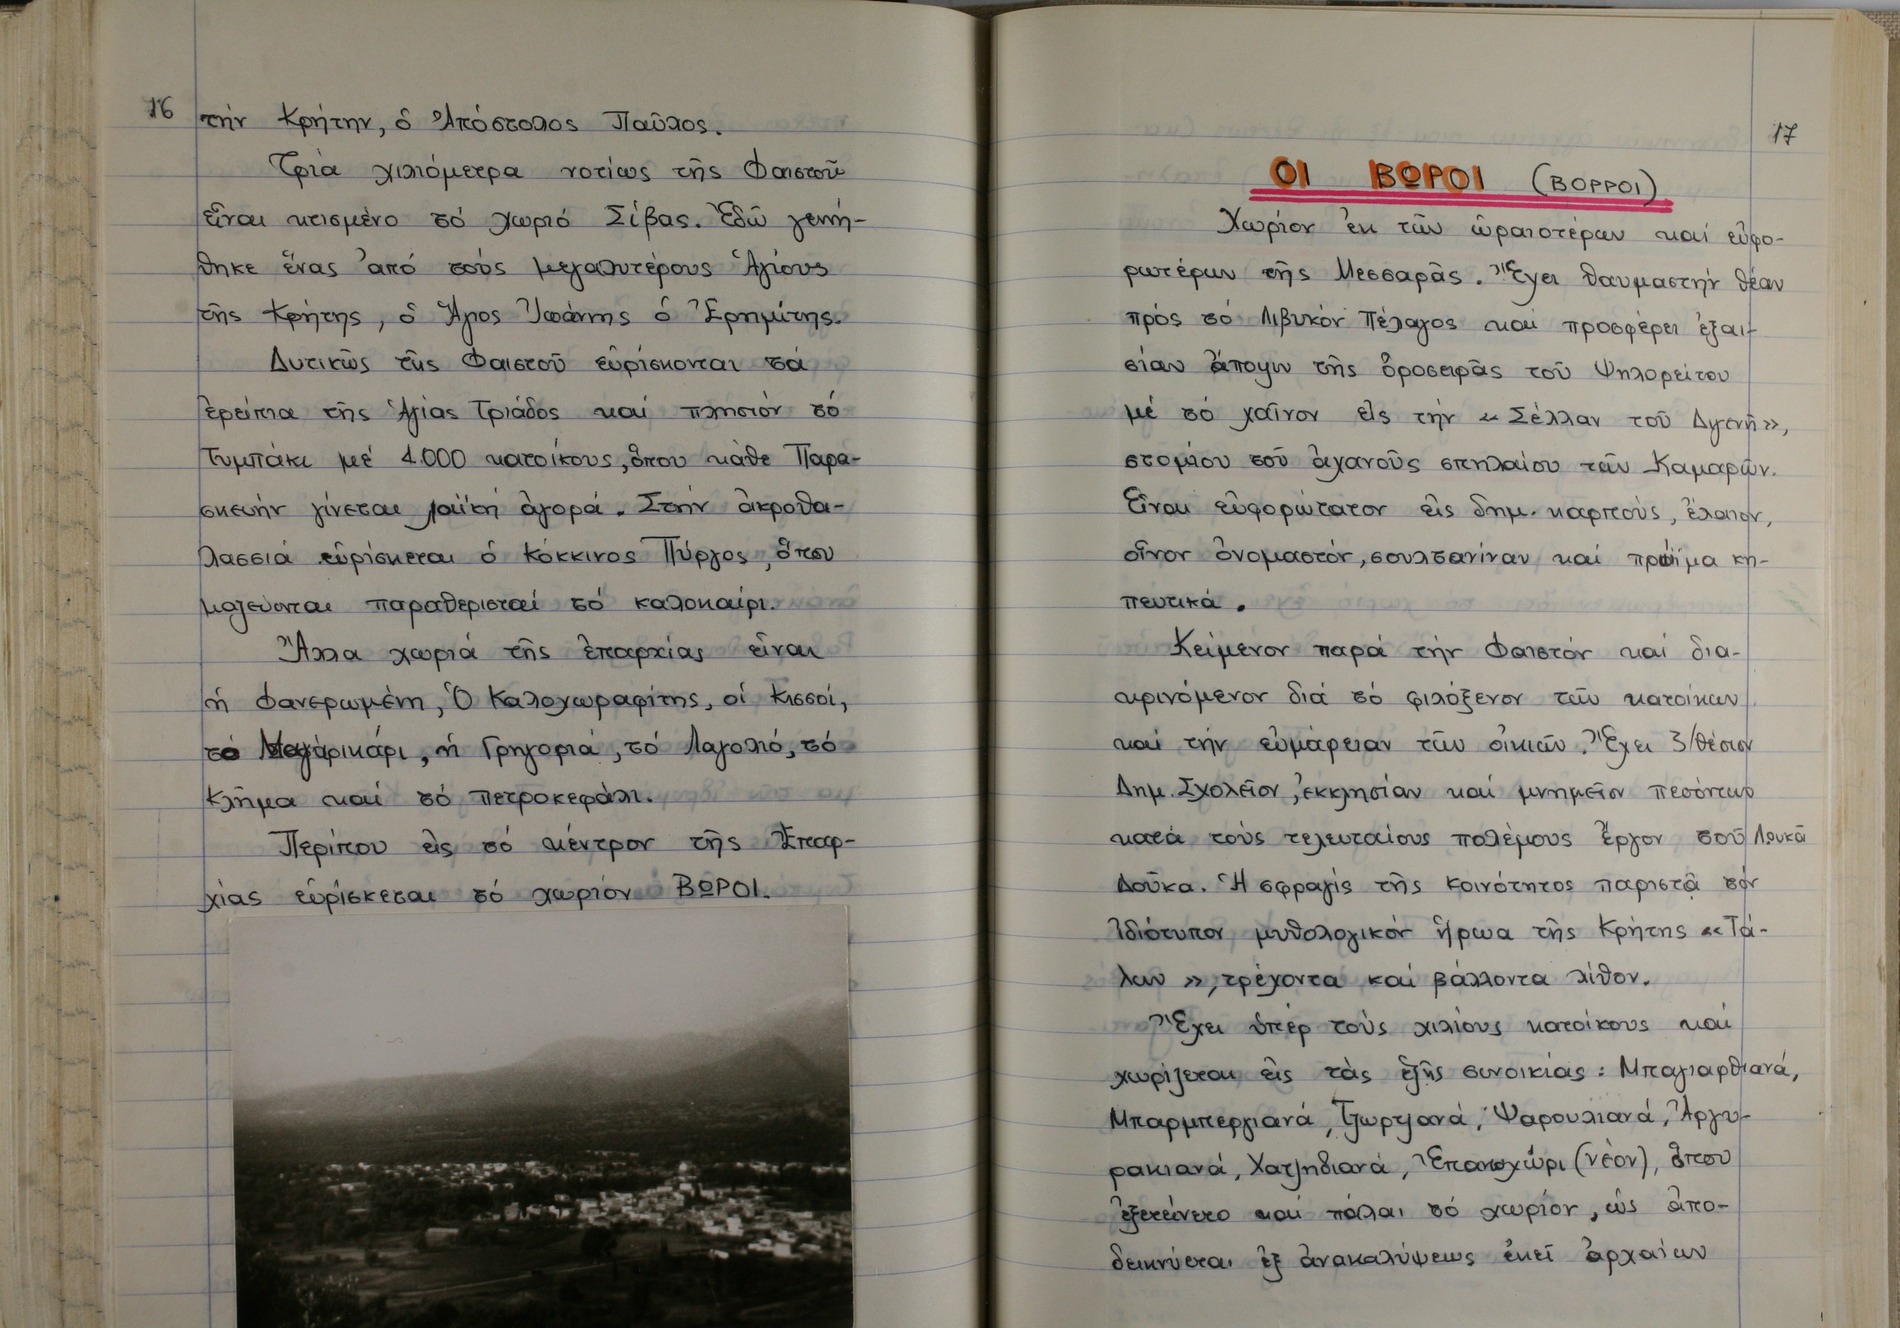 16
τήν Κρήτην, ὁ Ἀπόστολος Παῦλος.
Τρία χιλιόμετρα νοτίως τῆς Φαιστοῦ
εἶναι κτισμένο τό χωριό Σίβας. Ἐδῶ γεννή-
θηκε ἕνας ἀπό τούς μεγαλυτέρους Ἁγίους
τῆς Κρήτης, ὁ Ἅγιος Ἰωάννης ὁ Ἐρημίτης.
Δυτικῶς τῆς Φαιστοῦ εὑρίσκονται τά
ἐρείπια τῆς Ἁγίας Τριάδος καί πλησιόν τό
Τυμπάκι μέ 4.000 κατοίκους, ὅπου κάθε Παρα-
σκευήν γίνεται λαϊκή ἀγορά. Στήν ἀκροθα-
λασσιά εὑρίσκεται ὁ Κόκκινος Πύργος, ὅπου
μαζεύονται παραθερισταί τό καλοκαίρι.
Ἄλλα χωριά τῆς ἐπαρχίας εἶναι
ἡ Φανερωμένη, Ὁ Καλοχωραφίτης, οἱ Κισσοί,
τό Μαγαρικάρι, ἡ Γρηγοριά, τό Λαγολιό, τό
Κλῆμα καί τό πετροκεφάλι.
Περίπου εἰς τό κέντρον τῆς Ἐπαρ-
χίας εὑρίσκεται τό χωρίον ΒΩΡΟΙ.
17
ΟΙ ΒΩΡΟΙ (ΒΟΡΡΟΙ)
Χωρίον ἐκ τῶν ὡραιοτέρων καί εὐφο-
ρωτέρων τῆς Μεσσαρᾶς. Ἔχει θαυμαστήν θέαν
πρός τό Λιβυκόν Πέλαγος καί προσφέρει ἐξαι-
σίαν ἄποψιν τῆς ὀροσειρᾶς τοῦ Ψηλορείτου
μέ τό χαῖνον εἰς τήν «Σέλλαν τοῦ Διγενῆ»,
στομίου τοῦ ἀχανοῦς σπηλαίου τῶν Καμαρῶν.
Εἶναι εὐφορώτατον εἰς δημ. καρπούς, ἔλαιον,
οἶνον ὀνομαστόν, σουλτανίναν καί πρώϊμα κη-
πευτικά.
Κείμενον παρά τήν Φαιστόν καί δια-
κρινόμενον διά τό φιλόξενον τῶν κατοίκων
καί τήν εὐμάρειαν τῶν οἰκιῶν. Ἔχει 3/θέσιον
Δημ. Σχολεῖον, ἐκκλησίαν καί μνημεῖον πεσόντων
κατά τούς τελευταίους πολέμους ἔργον τοῦ Λουκᾶ
Δούκα. Ἡ σφραγίς τῆς κοινότητος παριστᾷ τόν
ἰδιότυπον μυθολογικόν ἥρωα τῆς Κρήτης «Τά-
λων», τρέχοντα καί βάλλοντα λίθον.
Ἔχει ὑπέρ τούς χιλίους κατοίκους καί
χωρίζεται εἰς τάς ἑξῆς συνοικίας: Μπαγιαρθιανά,
Μπαρμπεργιανά, Τζωρτζανά, Ψαρουλιανά, Ἀργυ-
ρακιανά, Χατζηδιανά, Ἐπανοχώρι (νέον), ὅπου
ἐξετείνετο καί πάλαι τό χωρίον, ὡς ἀπο-
δεικνύεται ἐξ ἀνακαλύψεως ἐκεῖ ἀρχαίων